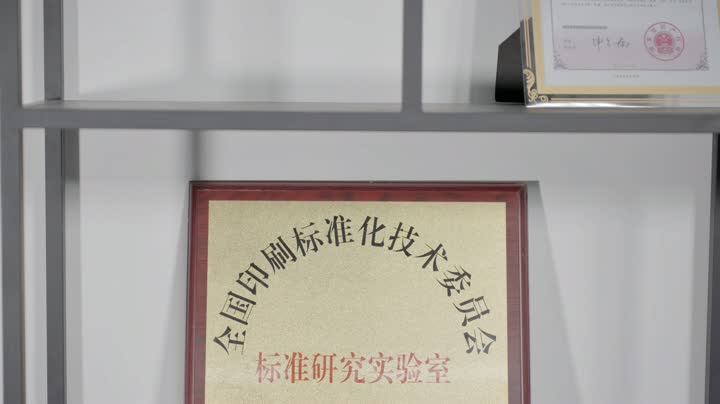 全国印刷标准化技术委员会
标准研究实验室